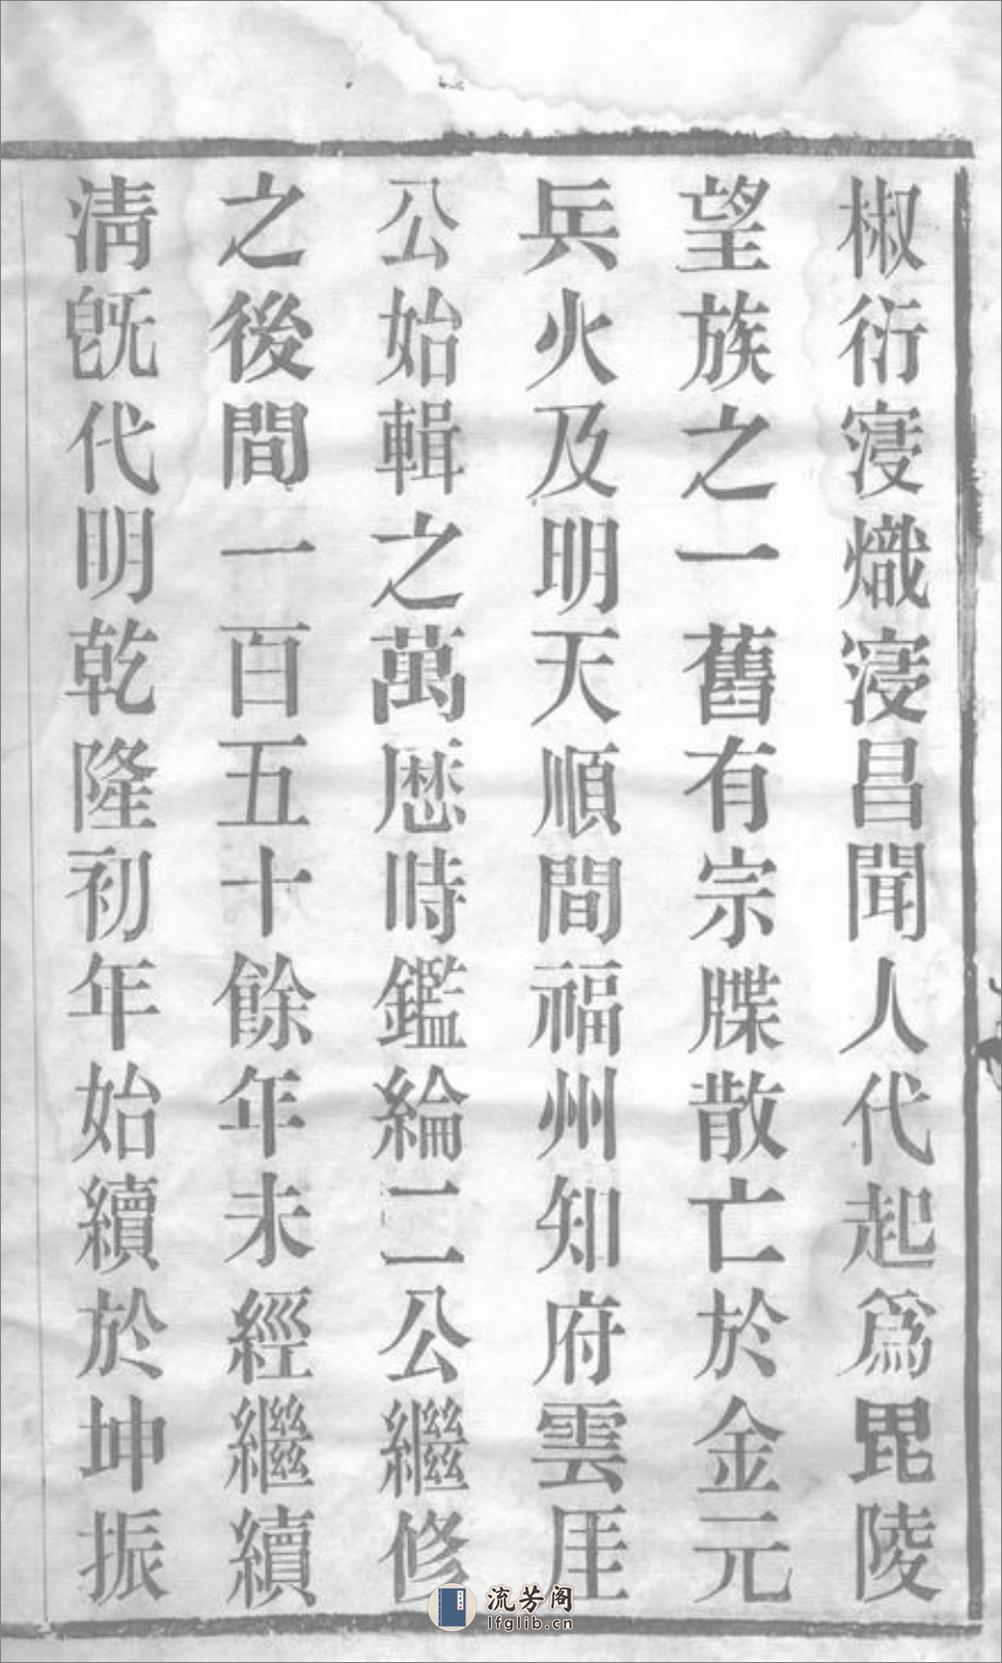 椒衍寖熾寖昌聞人代起爲毘陵
望族之一舊有宗牒散亡於金元
兵火及明天順間福州知府雲厓
公始輯之萬厯時鑑綸二公繼修
之後間一百五十餘年未經繼續
淸旣代明乾隆初年始續於坤振
流芳阁
lfglib.cn